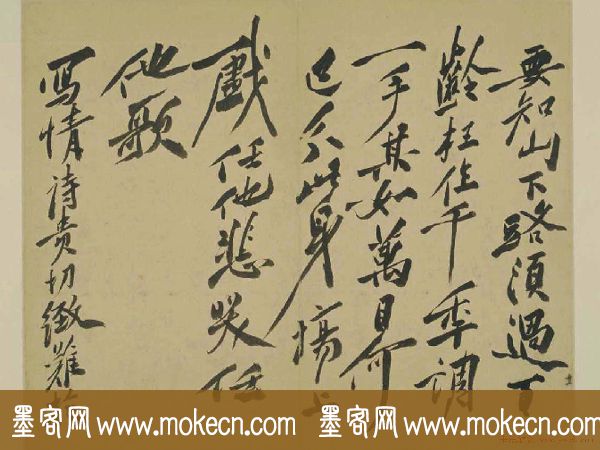 要知山下路須過
齡枉作千年調
一手其如萬目何
已分此身場上
戲任他悲哭任
他歌
寫情詩貴切徵難
墨客网 www.mokecn.com 墨客网 www.mokecn.com